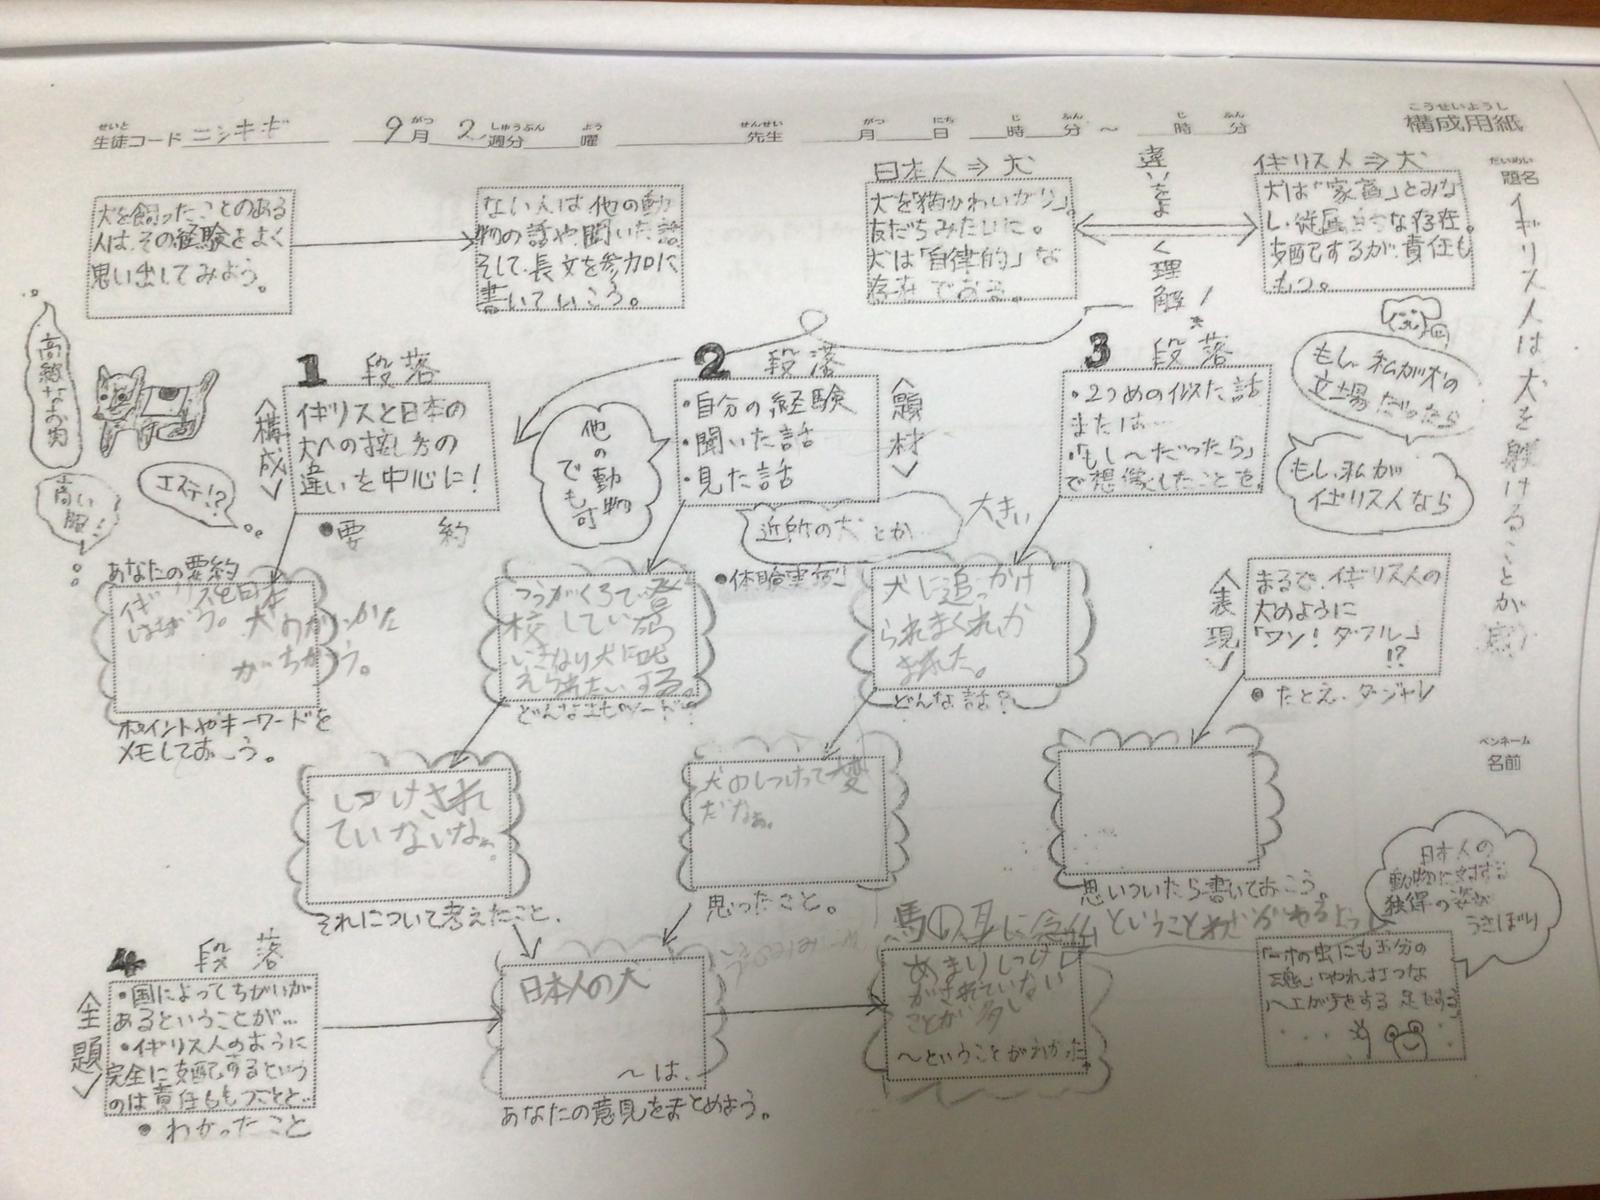 こうせいようし
構成用紙
せいと がつ しゅうぶん よう せんせい がつ にち じ ふん じ ふん
生徒コード ニシキギ 9月 2週分 曜 先生 月 日 時 分 〜 時 分
だいめい
題名
イギリス人は犬を躾けることが
ペンネーム
名前
犬を飼ったことのある
人は、その経験をよく
思い出してみよう。
ない人は他の動
物の話や聞いた話。
そして、長文を参加に
書いていこう。
日本人⇒犬
犬を「猫かわいがり」。
友だちみたいに。
犬は「自律的」な
存在である。
違いをよく理解!
イギリス人⇒犬
犬は「家畜」とみな
し、従属的な存在。
支配するが、責任も
もつ。
高級なお肉
高い服!
エステ!?
1 段落
〈構成〉
イギリスと日本の
犬への接し方の
違いを中心に!
●要約
他の動物でも可
2 段落
・自分の経験
・聞いた話
・見た話
〈題材〉
近所の犬とか…
大きい
●体験実例!
3 段落
・2つめの似た話
または…
「もし〜だったら」
で想像したことを。
もし私が犬の
立場だったら
もし、私が
イギリス人なら
あなたの要約
犬のかいかた
がちがう。
ポイントやキーワードを
メモしておこう。
つうがくろで登
校している時
いきなり犬に吠
えられたいする。
どんなエピソード?
犬に追っかけ
られまくれか
まれた。
どんな話?
〈表現〉
まるで、イギリス人の
犬のように
「ワン!ダフル」
!?
●たとえ、ダジャレ
しつけされ
ていないなぁ。
それについて考えたこと、
犬のしつけって大変
だなぁ。
思ったこと。
思いついたら書いておこう。
日本人の
動物に対する
独得の姿が
うきぼり
4 段落
〈全題〉
・国によってちがいが
あるということが…
・イギリス人のように
完全に支配するという
のは責任ももつことと…
●わかったこと
日本人の犬
〜は、
あなたの意見をまとめよう。
馬の耳に念仏ということわざがわるよう
あまりしつけ
がされていない
ことが多い
〜ということがわかった
「一寸の虫にも五分の
魂」「やれ打つな
ハエが手をする足をする